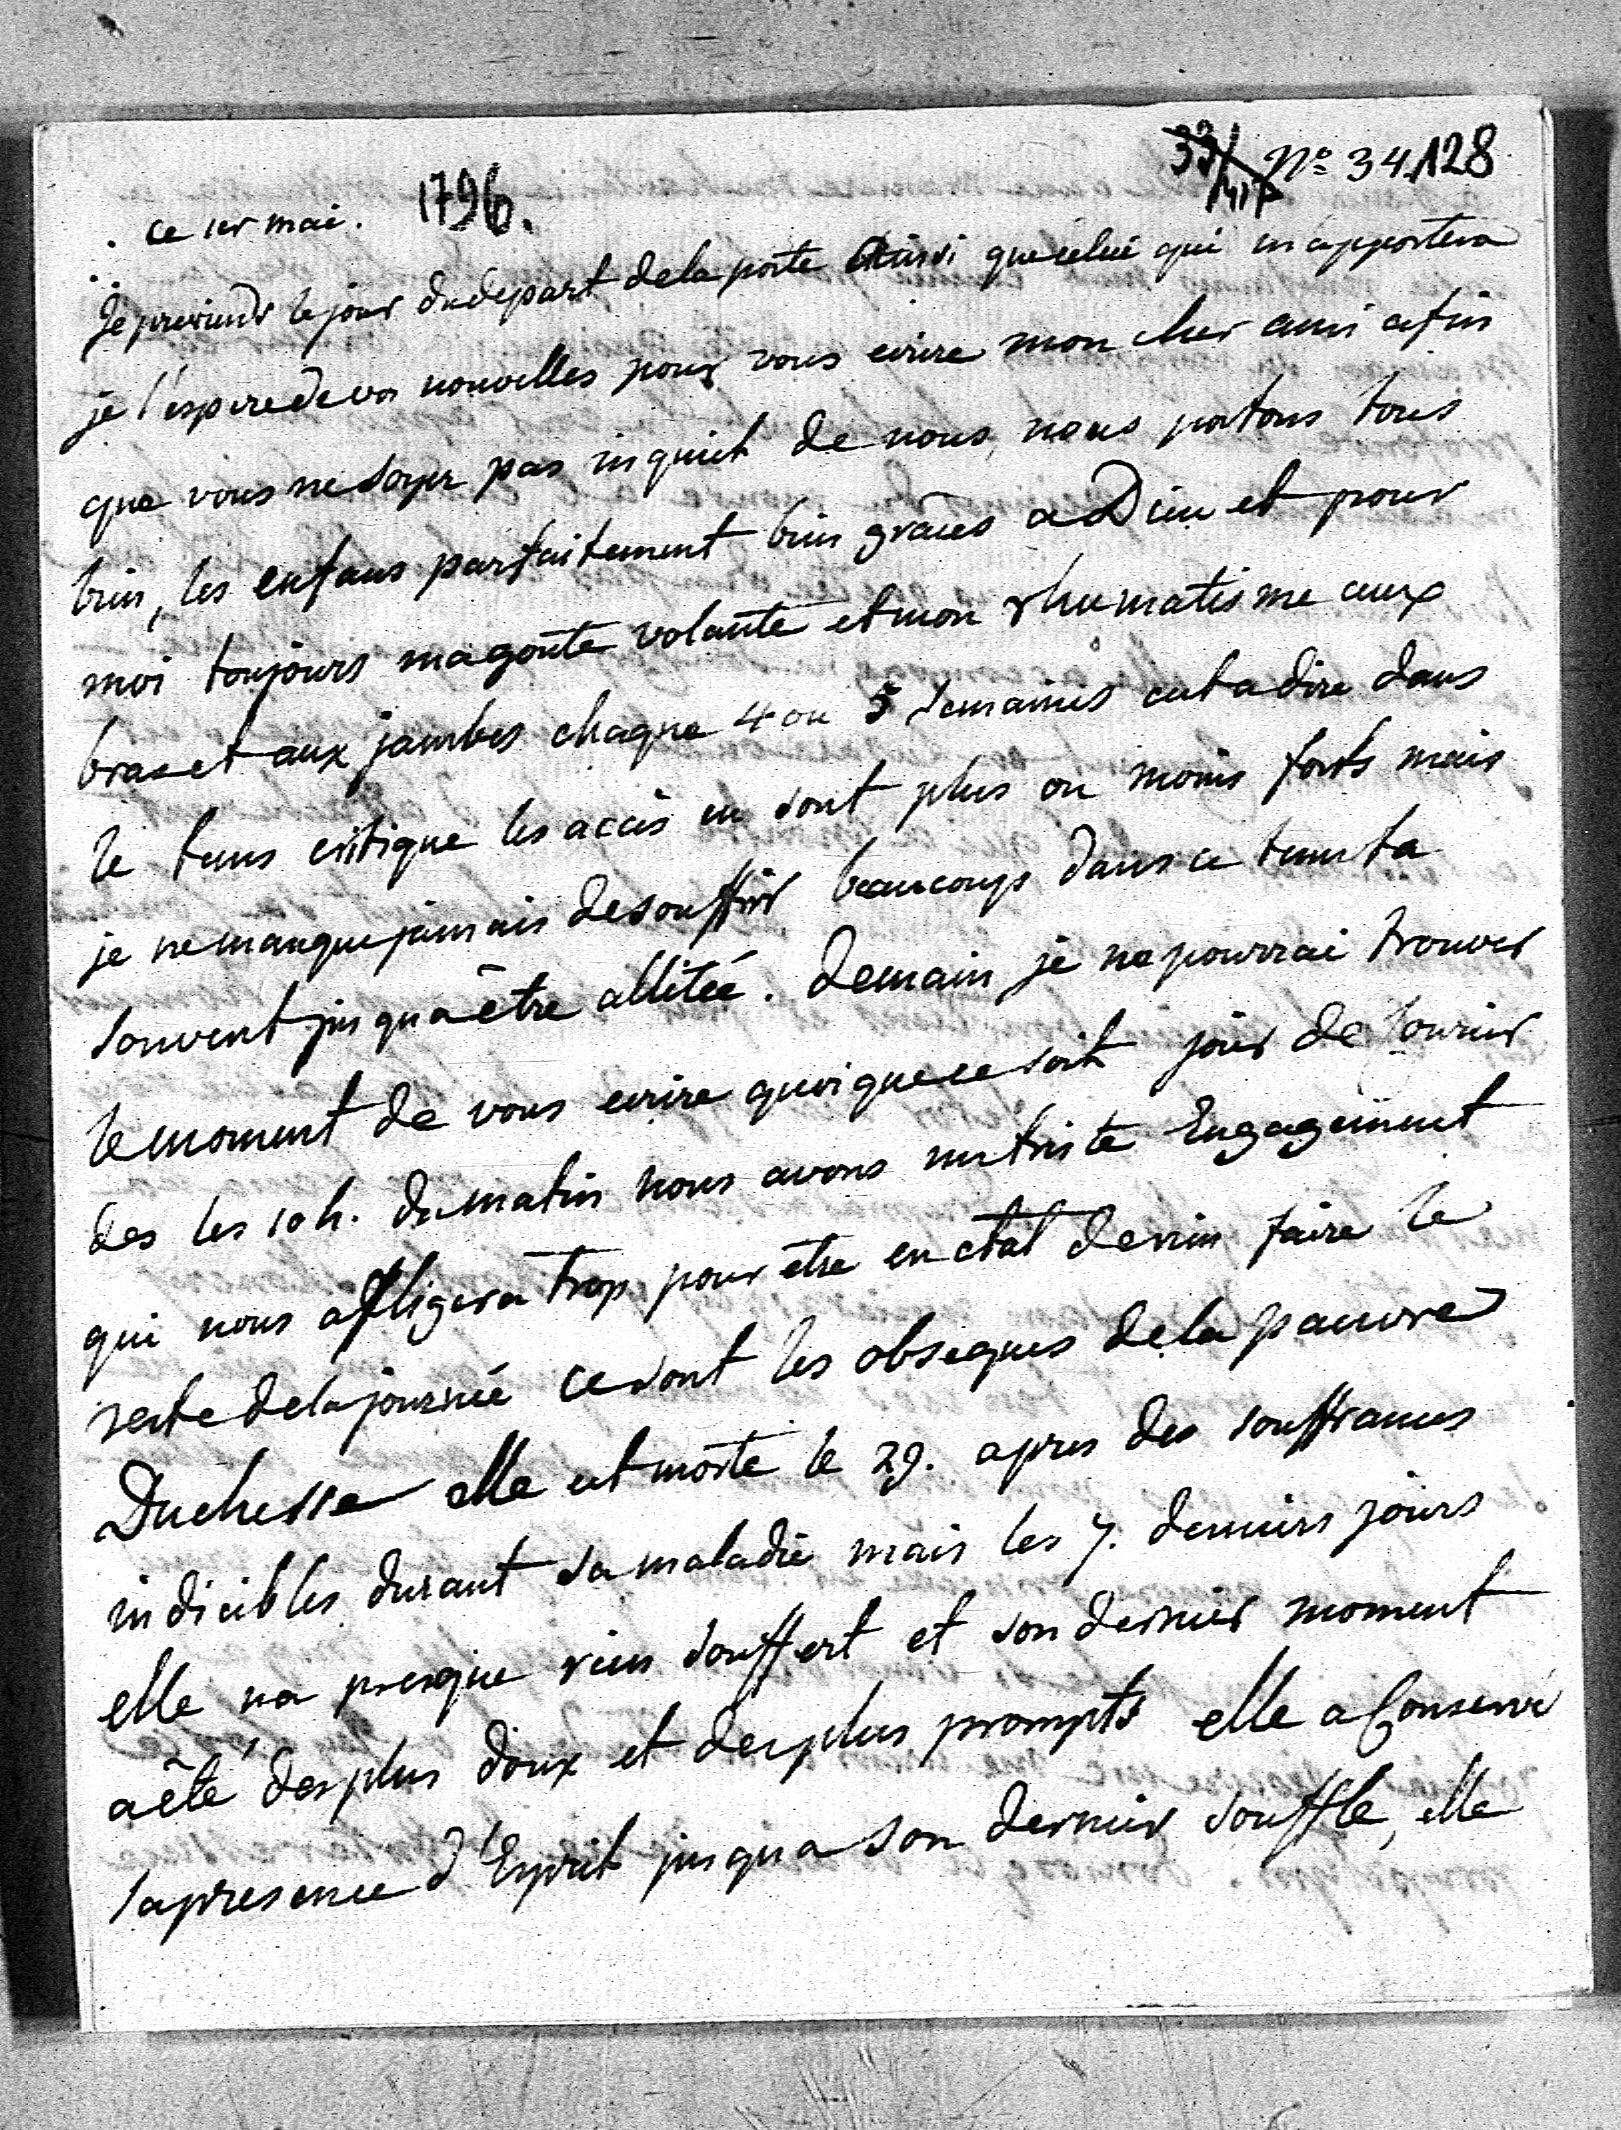 33/417 No 34. 128
ce 1er mai. 1796.
Je previends le jour du depart de la poste Ainsi que celui qui m'apportera
je l'espere de vos nouvelles pour vous ecrire mon cher ami afin
que vous ne soyez pas inquiet de nous, nous portons tous
bien, les enfans parfaitement bien graces a Dieu et pour
moi toujours ma goute volante et mon rhumatisme aux
bras et aux jambes chaque 4 ou 5 semaines cest a dire dans
le tems critique les accès en sont plus ou moins forts mais
je ne manque jamais de souffrir beaucoup dans ce tems la
souvent jusqu'a être allitée. Demain je ne pourrai trouver
le moment de vous ecrire quoique ce soit jour de Courier
des les 10 h. du matin nous avons un triste Engagement
qui nous affligera trop pour etre en etat de rien faire le
reste de la journée ce sont les obseques de la pauvre
Duchesse elle est morte le 29. apres des souffrances
indicibles durant sa maladie mais les 7. derniers jours
elle na presque rien souffert et son dernier moment
a été des plus doux et des plus prompts elle a Conservé
sa presence d'Esprit jusqu a son dernier souffle, elle